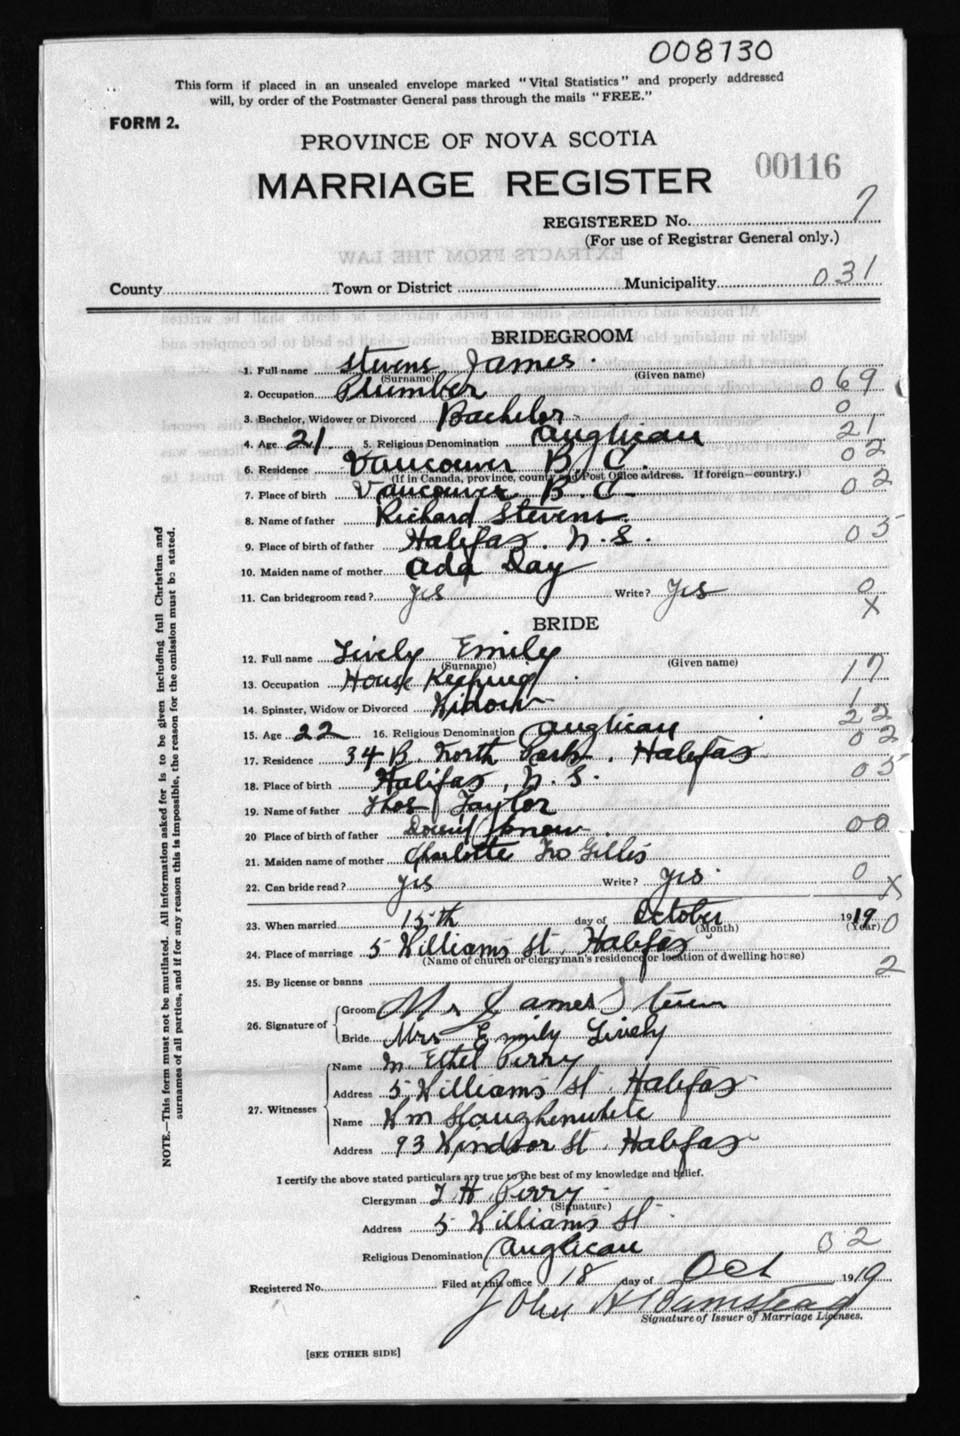 008730
This form if placed in an unsealed envelope marked "Vital Statistics" and properly addressed
will, by order of the Postmaster General pass through the mails "FREE."
FORM 2.
PROVINCE OF NOVA SCOTIA
00116
MARRIAGE REGISTER
REGISTERED No. 7
(For use of Registrar General only.)
EXTRACTS FROM THE LAW
County Town or District Municipality 031
BRIDEGROOM
1. Full name Stevens James
(Surname) (Given name)
2. Occupation Plumber 069
3. Bachelor, Widower or Divorced Bachelor 0
4. Age 21 5. Religious Denomination Anglican 21
6. Residence Vancouver B. C. 02
(If in Canada, province, county and Post Office address. If foreign—country.)
7. Place of birth Vancouver B. C. 02
8. Name of father Richard Stevens
9. Place of birth of father Halifax. N. S. 05
10. Maiden name of mother Ada Day
11. Can bridegroom read? Yes Write? Yes 0
X
BRIDE
12. Full name Lively Emily
(Surname) (Given name)
13. Occupation House Keeping 17
14. Spinster, Widow or Divorced Widow 1
15. Age 22 16. Religious Denomination Anglican 22
17. Residence 34 B. North Park. Halifax 02
18. Place of birth Halifax, N. S. 05
19. Name of father Thos Taylor
20 Place of birth of father Don't know 00
21. Maiden name of mother Charlotte Gillis
22. Can bride read? Yes Write? Yes 0
X
23. When married 15th day of October 1919
(Month) (Year) 0
24. Place of marriage 5 Williams St Halifax
(Name of church or clergyman's residence or location of dwelling house)
25. By license or banns 2
26. Signature of Groom Mr James Steven
Bride Mrs Emily Lively
27. Witnesses Name M Ethel Perry
Address 5 Williams St Halifax
Name Wm Slaughenwhite
Address 93 Windsor St. Halifax
I certify the above stated particulars are true to the best of my knowledge and belief.
Clergyman T H Perry
(Signature)
Address 5 Williams St
Religious Denomination Anglican 02
Registered No. Filed at this office 18 day of Oct 1919
John H Barnstead
Signature of Issuer of Marriage Licenses.
[SEE OTHER SIDE]
NOTE.—This form must not be mutilated. All information asked for is to be given including full Christian and
surnames of all parties, and if for any reason this is impossible, the reason for the omission must be stated.